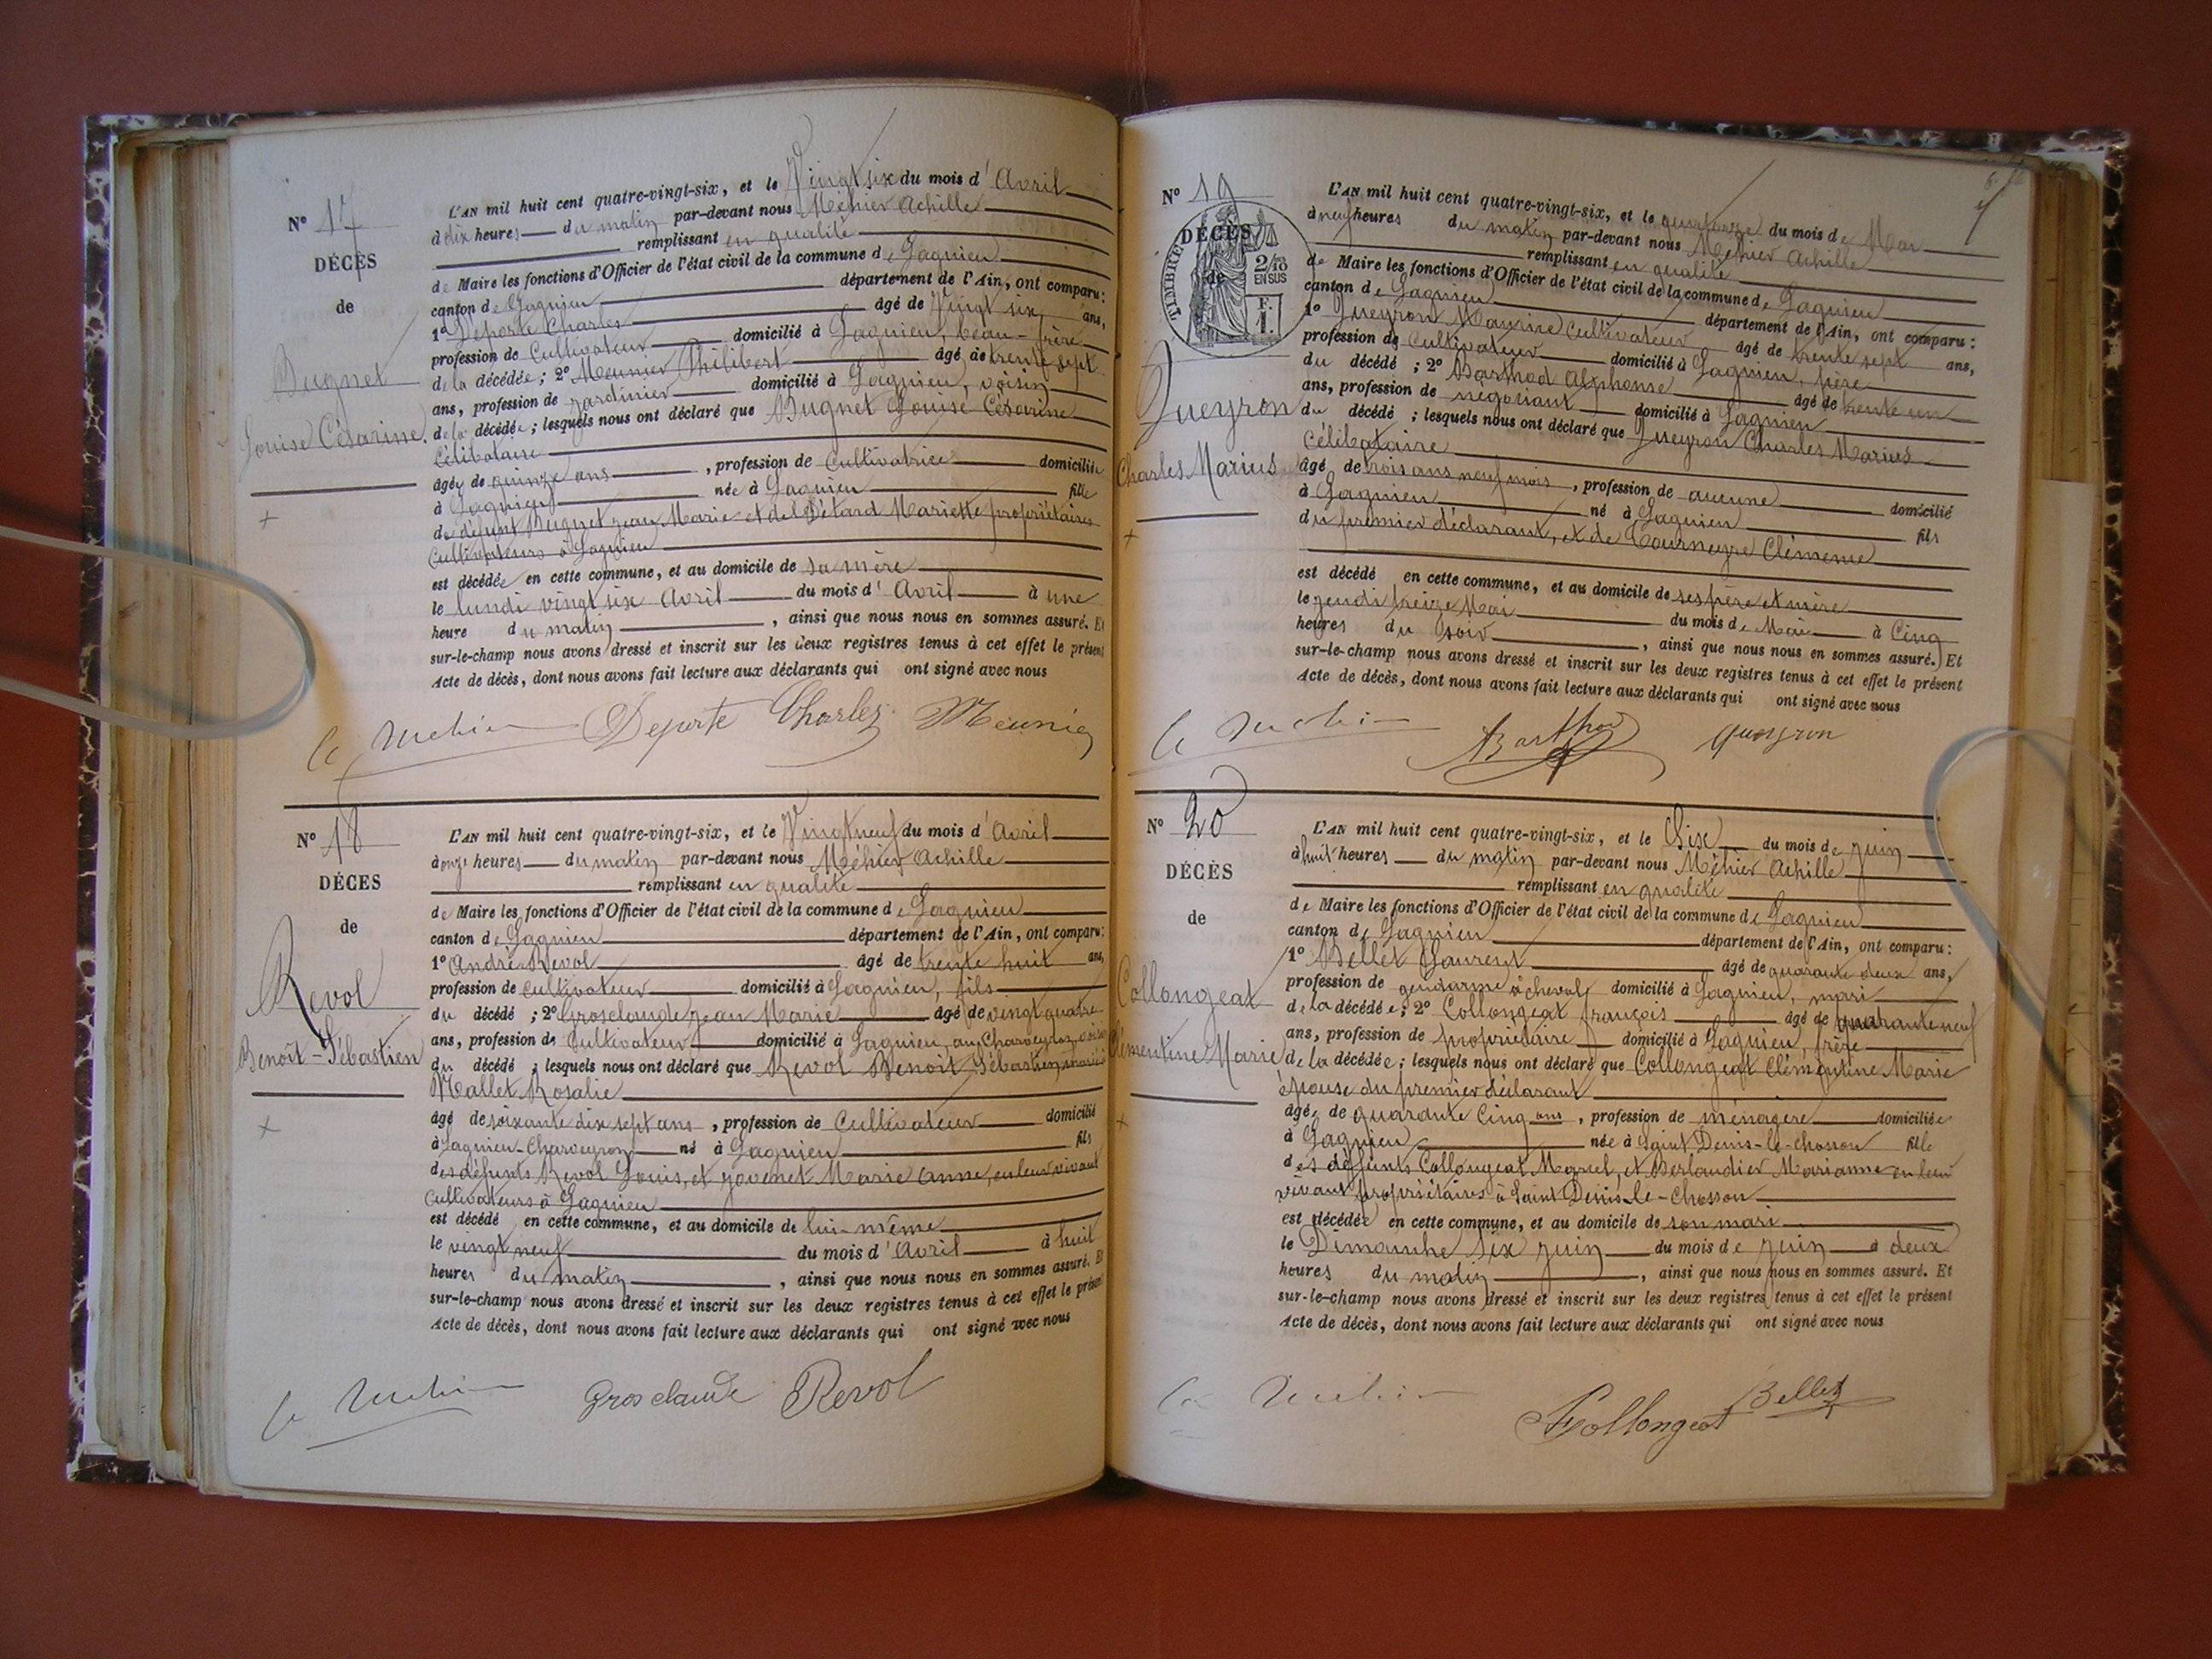 N° 17
DÉCÈS
de
Bugnet
Louise Césarine.
L'AN mil huit cent quatre-vingt-six, et le Vingt six du mois d'Avril
à dix heures du matin par-devant nous Méhier Achille
remplissant en qualité
de Maire les fonctions d'Officier de l'état civil de la commune de Lagnieu
canton de Lagnieu département de l'Ain, ont comparu:
1° Deporte Charles âgé de Vingt six ans,
profession de Cultivateur domicilié à Lagnieu, beau-frère
de la décédée; 2° Meunier Philibert âgé de trente sept
ans, profession de jardinier domicilié à Lagnieu, voisin
de la décédée; lesquels nous ont déclaré que Bugnet Louise Césarine
Célibataire
âgée de quinze ans, profession de Cultivatrice domiciliée
à Lagnieu née à Lagnieu fille
de défunt Bugnet Jean Marie et de Détard Mariette propriétaires
Cultivateurs à Lagnieu
est décédée en cette commune, et au domicile de sa mère
le lundi vingt six Avril du mois d'Avril à une
heure du matin, ainsi que nous nous en sommes assuré. Et
sur-le-champ nous avons dressé et inscrit sur les deux registres tenus à cet effet le présent
Acte de décès, dont nous avons fait lecture aux déclarants qui ont signé avec nous
Deporte Charles Meunier
N° 18
DÉCÈS
de
Revol
Benoît-Sébastien
L'AN mil huit cent quatre-vingt-six, et le Vingt neuf du mois d'Avril
à onze heures du matin par-devant nous Méhier Achille
remplissant en qualité
de Maire les fonctions d'Officier de l'état civil de la commune de Lagnieu
canton de Lagnieu département de l'Ain, ont comparu:
1° André Revol âgé de trente huit ans,
profession de Cultivateur domicilié à Lagnieu, fils
du décédé; 2° Grosclaude Jean Marie âgé de vingt quatre
ans, profession de Cultivateur domicilié à Lagnieu, au Charveyron, voisin
du décédé; lesquels nous ont déclaré que Revol Benoît Sébastien, marié à
Mallet Rosalie
âgé de soixante dix sept ans, profession de Cultivateur domicilié
à Lagnieu-Charveyron né à Lagnieu fils
des défunts Revol Louis, et Jovenet Marie Anne, en leur vivant
Cultivateurs à Lagnieu
est décédé en cette commune, et au domicile de lui-même
le vingt neuf du mois d'Avril à huit
heures du matin, ainsi que nous nous en sommes assuré. Et
sur-le-champ nous avons dressé et inscrit sur les deux registres tenus à cet effet le présent
Acte de décès, dont nous avons fait lecture aux déclarants qui ont signé avec nous
Grosclaude Revol
N° 19
DÉCÈS
de
TIMBRE
2/10
EN SUS
F.
1.
Queyron
Charles Marius
L'AN mil huit cent quatre-vingt-six, et le quatorze du mois de Mai
à neuf heures du matin par-devant nous Méhier Achille
remplissant en qualité
de Maire les fonctions d'Officier de l'état civil de la commune de Lagnieu
canton de Lagnieu département de l'Ain, ont comparu:
1° Queyron Maurine Cultivateur âgé de trente sept ans,
profession de Cultivateur domicilié à Lagnieu, père
du décédé; 2° Barthod Alphonse âgé de trente un
ans, profession de négociant domicilié à Lagnieu
du décédé; lesquels nous ont déclaré que Queyron Charles Marius
Célibataire
âgé de trois ans neuf mois, profession de aucune domicilié
à Lagnieu né à Lagnieu fils
du premier déclarant, et de Tourneyre Clémence
est décédé en cette commune, et au domicile de ses père et mère
le jeudi treize Mai du mois de Mai à Cinq
heures du soir, ainsi que nous nous en sommes assuré. Et
sur-le-champ nous avons dressé et inscrit sur les deux registres tenus à cet effet le présent
Acte de décès, dont nous avons fait lecture aux déclarants qui ont signé avec nous
Barthod Queyron
N° 20
DÉCÈS
de
Collongeat
Clémentine Marie
L'AN mil huit cent quatre-vingt-six, et le Six du mois de juin
à huit heures du matin par-devant nous Méhier Achille
remplissant en qualité
de Maire les fonctions d'Officier de l'état civil de la commune de Lagnieu
canton de Lagnieu département de l'Ain, ont comparu:
1° Bellet Laurent âgé de quarante deux ans,
profession de gendarme à cheval domicilié à Lagnieu, mari
de la décédée; 2° Collongeat françois âgé de quarante neuf
ans, profession de propriétaire domicilié à Lagnieu, frère
de la décédée; lesquels nous ont déclaré que Collongeat Clémentine Marie
épouse du premier déclarant
âgée de quarante Cinq ans, profession de ménagère domiciliée
à Lagnieu née à Saint Denis-le-Chosson fille
des défunts Collongeat Marcel, et Berlandier Marianne en leur
vivant propriétaires à Saint Denis-le-Chosson
est décédée en cette commune, et au domicile de son mari
le Dimanche Six juin du mois de juin à deux
heures du matin, ainsi que nous nous en sommes assuré. Et
sur-le-champ nous avons dressé et inscrit sur les deux registres tenus à cet effet le présent
Acte de décès, dont nous avons fait lecture aux déclarants qui ont signé avec nous
Collongeat Bellet